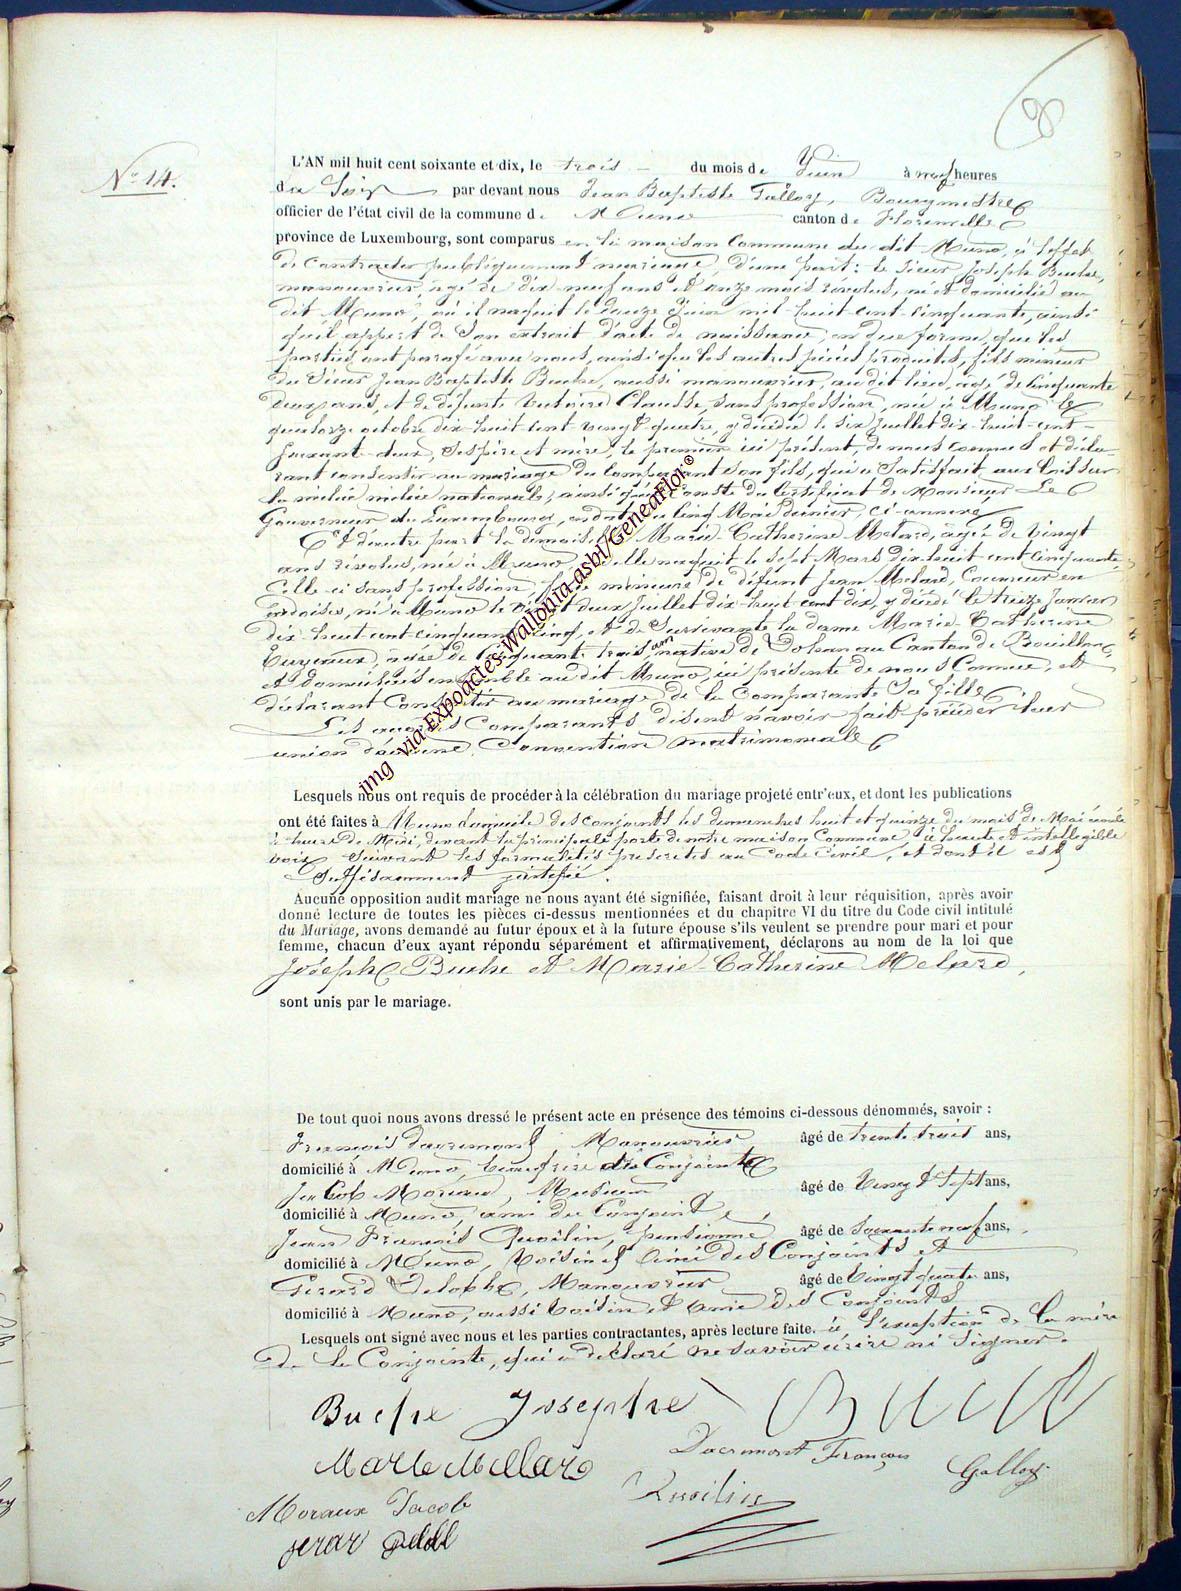 8
N° 14.
L'AN mil huit cent soixante et dix, le trois du mois de Juin à neuf heures
du Soir par devant nous Jean Baptiste Galloy, Bourgmestre
officier de l'état civil de la commune de Muno canton de Florenville
province de Luxembourg, sont comparus en la maison Commune du dit Muno, à l'effet
de Contracter publiquement mariage, d'une part: le Sieur Joseph Buche,
manouvrier, agé de dix neuf ans et onze mois révolus, né et domicilié au
dit Muno, où il naquit le douze Juin mil-huit-cent-cinquante, ainsi
qu'il appert de Son extrait d'acte de naissance, en due forme, que les
parties ont parafé avec nous, ainsi que les autres pièces produites, fils mineur
du Sieur Jean Baptiste Buche, aussi manouvrier, au dit lieu, agé de Cinquante
deux ans, et de défunte Victoire Clausse, Sans profession, née à Muno le
quatorze octobre dix-huit-cent vingt-quatre, y décédée le six Juillet dix-huit-cent-
Soixante-deux, Ses père et mère, le premier ici présent, de nous connu et décla-
rant consentir au mariage du Comparant son fils, qui a Satisfait aux lois sur
la milice nationale, ainsi que Conste du Certificat de Monsieur Le
Gouverneur du Luxembourg, en date du Cinq Mai dernier, ci-annexé
Et d'autre part la demoiselle Marie-Catherine Melard, agée de Vingt
ans révolus, née à Muno, où elle naquit le Sept Mars dix-huit cent Cinquante,
Celle-ci sans profession, fille mineure de défunt Jean Melard, Couvreur en
Ardoises, né à Muno le Vingt deux Juillet dix-huit cent dix, y décédé le treize Janvier
dix-huit cent cinquante cinq, et de Survivante la dame Marie-Catherine
agée de Cinquante trois ans native de Dohan au Canton de Bouillon,
et domiciliées ensemble au dit Muno, ici présente de nous Connue, et
déclarant Consentir au mariage de la Comparante Sa fille
Les Comparants disent n'avoir fait précéder leur
union d'aucune Convention matrimoniale
Lesquels nous ont requis de procéder à la célébration du mariage projeté entr'eux, et dont les publications
ont été faites à Muno domicile des conjoints les dimanches huit et quinze du mois de Mai
à heure de Midi, devant la principale porte de notre maison Commune à haute et intelligible
voix Suivant les formalités prescrites au Code Civil, et dont il est
Suffisamment justifié.
Aucune opposition audit mariage ne nous ayant été signifiée, faisant droit à leur réquisition, après avoir
donné lecture de toutes les pièces ci-dessus mentionnées et du chapitre VI du titre du Code civil intitulé
du Mariage, avons demandé au futur époux et à la future épouse s'ils veulent se prendre pour mari et pour
femme, chacun d'eux ayant répondu séparément et affirmativement, déclarons au nom de la loi que
Joseph Buche et Marie-Catherine Melard,
sont unis par le mariage.
De tout quoi nous avons dressé le présent acte en présence des témoins ci-dessous dénommés, savoir :
François Dacremont, Manouvrier âgé de trente trois ans,
domicilié à Muno, beau frère de la Conjointe
Jacob Moraux, âgé de Vingt Sept ans,
domicilié à Muno, ami du Conjoint,
Jean François Quoilin, pensionné âgé de Soixante neuf ans,
domicilié à Muno, Voisin et ami des Conjoints, et
Gerard Manouvrier âgé de Vingt quatre ans,
domicilié à Muno, aussi Voisin et Amis des Conjoints
Lesquels ont signé avec nous et les parties contractantes, après lecture faite. à l'exception de la mère
de la Conjointe, qui a déclaré ne savoir écrire ni Signer.
Buche Josephe
Dacremont François
Galloy
Moraux Jacob
Quoilin
img via Expoactes-Wallonia-asbl/GeneaFlor©